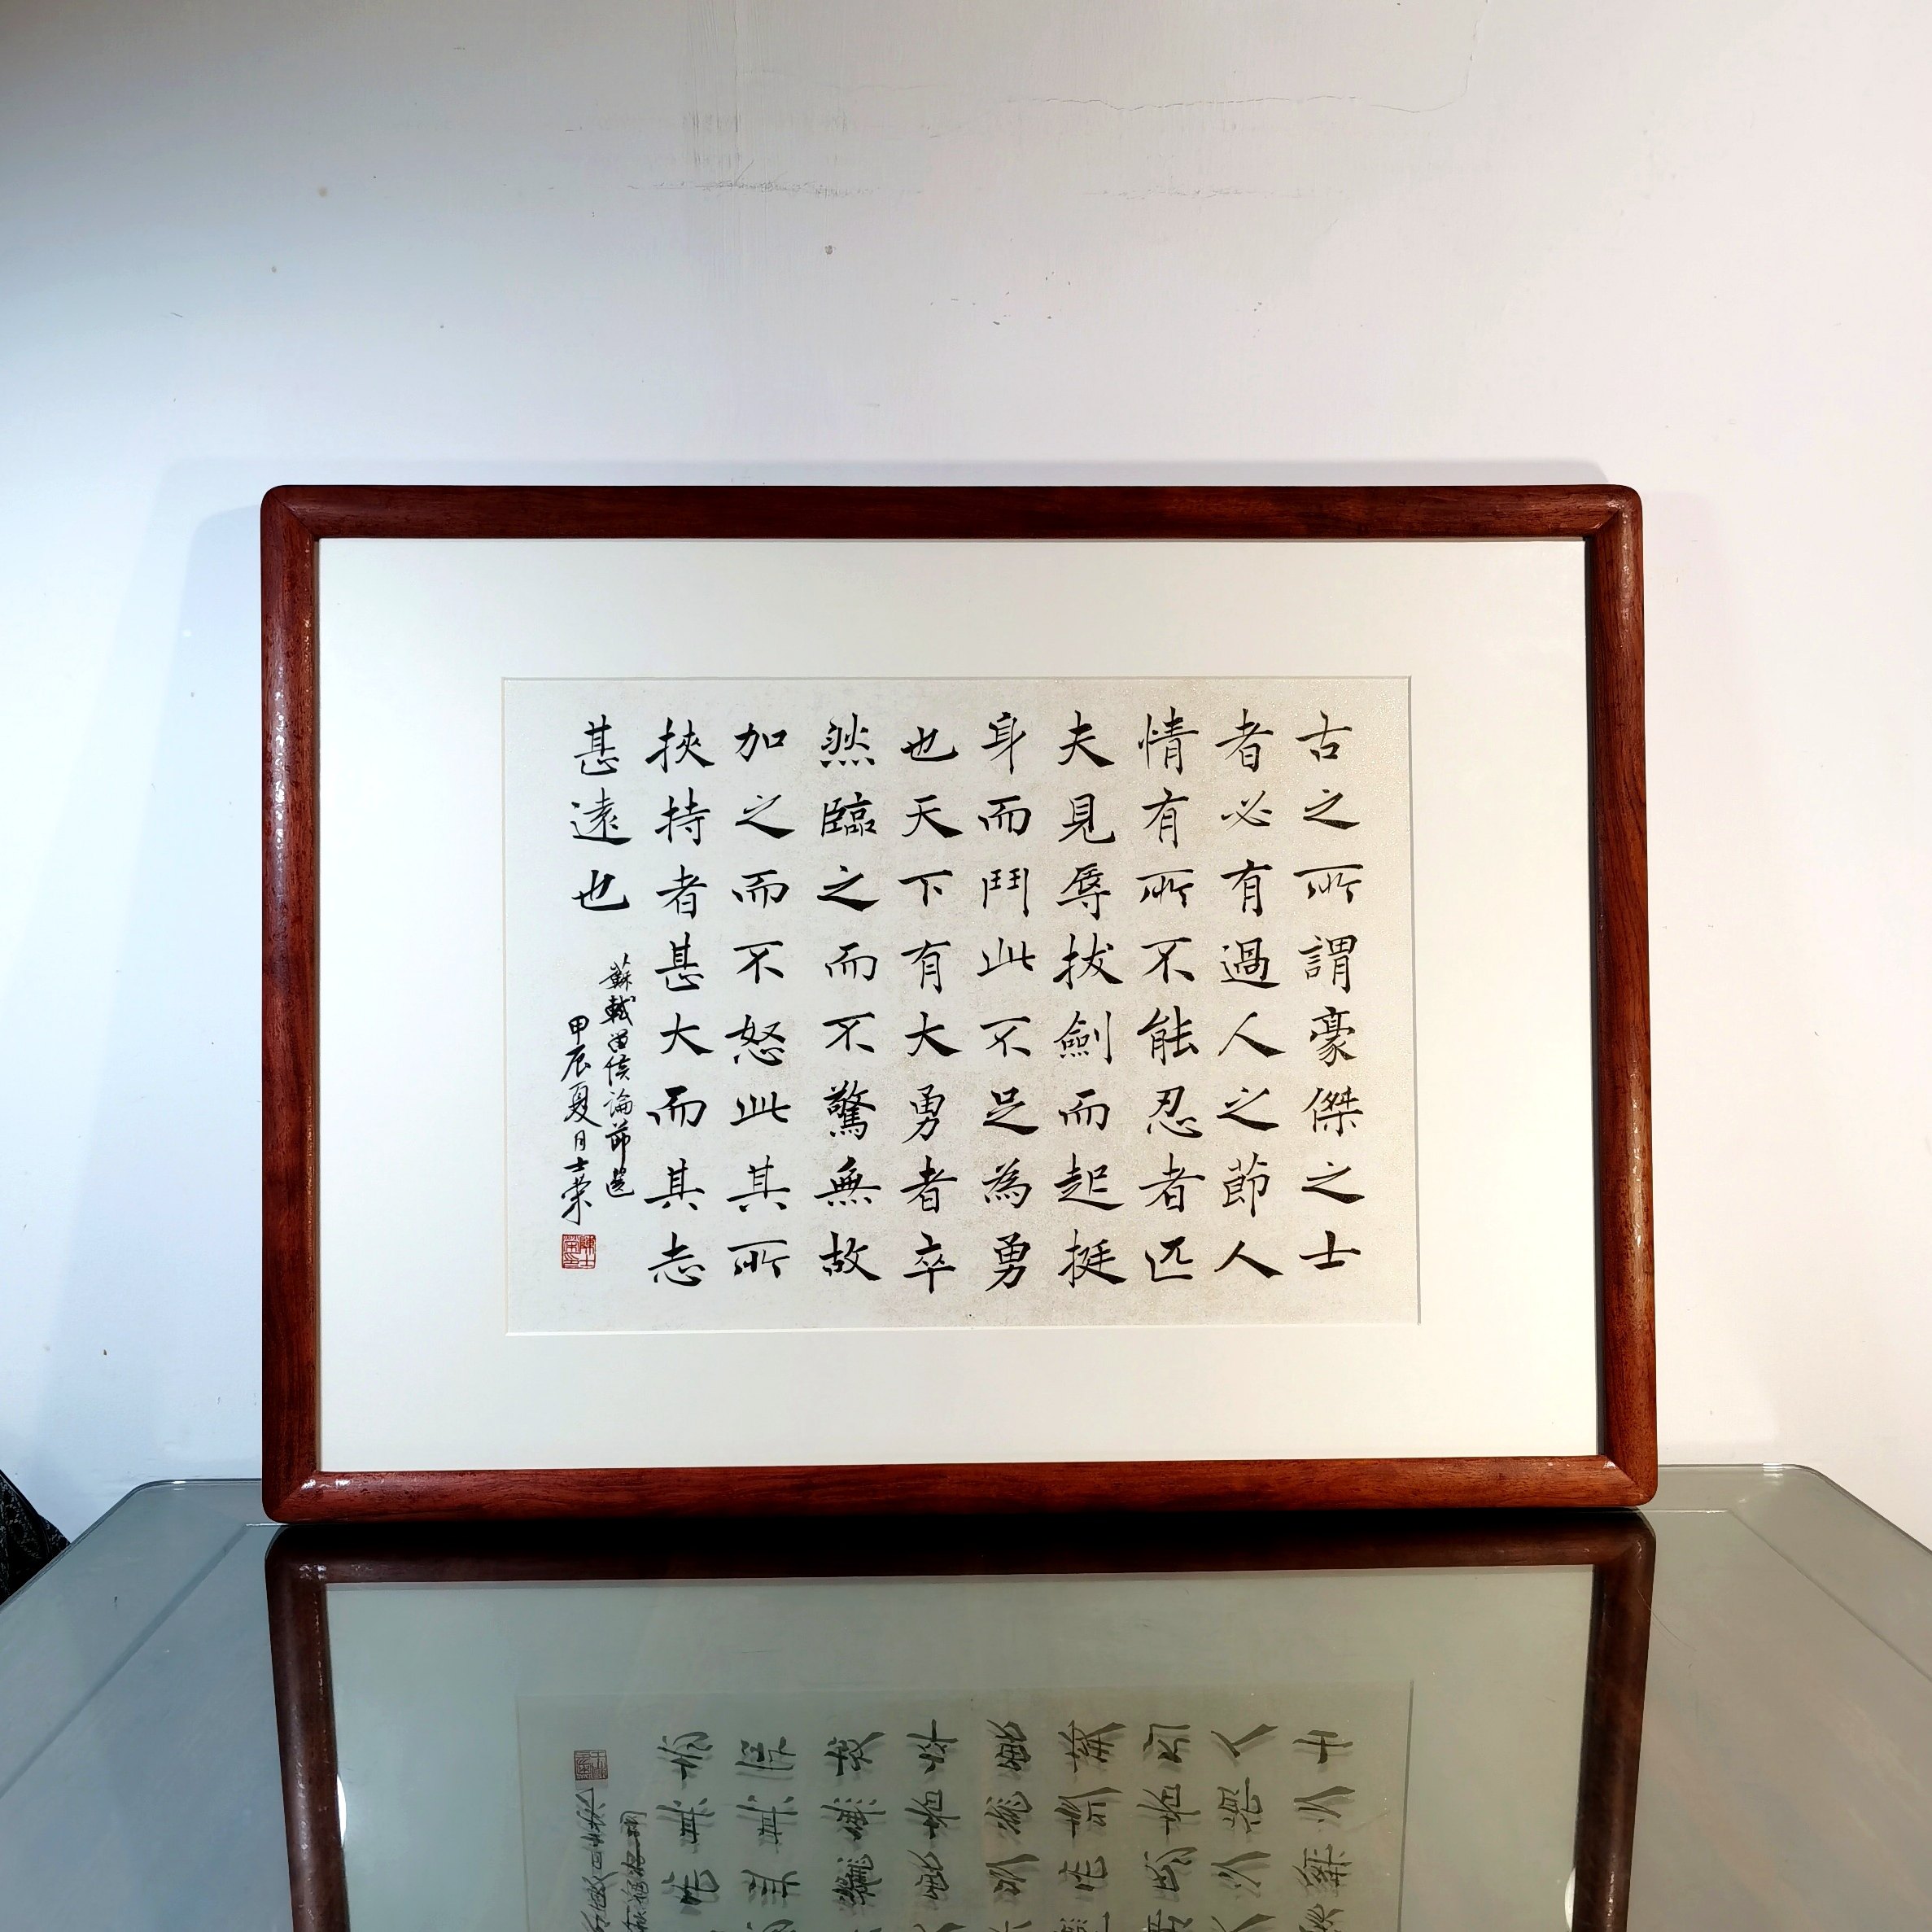 古之所謂豪傑之士
者必有過人之節人
情有所不能忍者匹
夫見辱拔劍而起挺
身而鬥此不足為勇
也天下有大勇者卒
然臨之而不驚無故
加之而不怒此其所
挾持者甚大而其志
甚遠也
蘇軾留侯論節選
甲辰夏月士榮